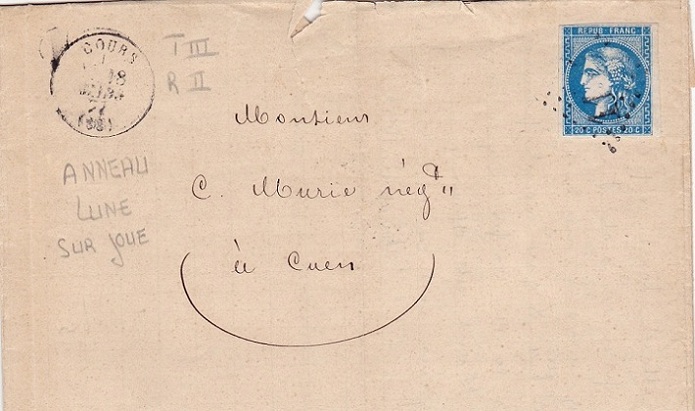 COURS
18
MARS
71
(68)
T III
R II
REPUB. FRANC.
20 C. POSTES 20 C.
Monsieur
C. Murie nég^t
à Caen
ANNEAU
LUNE
SUR JOUE